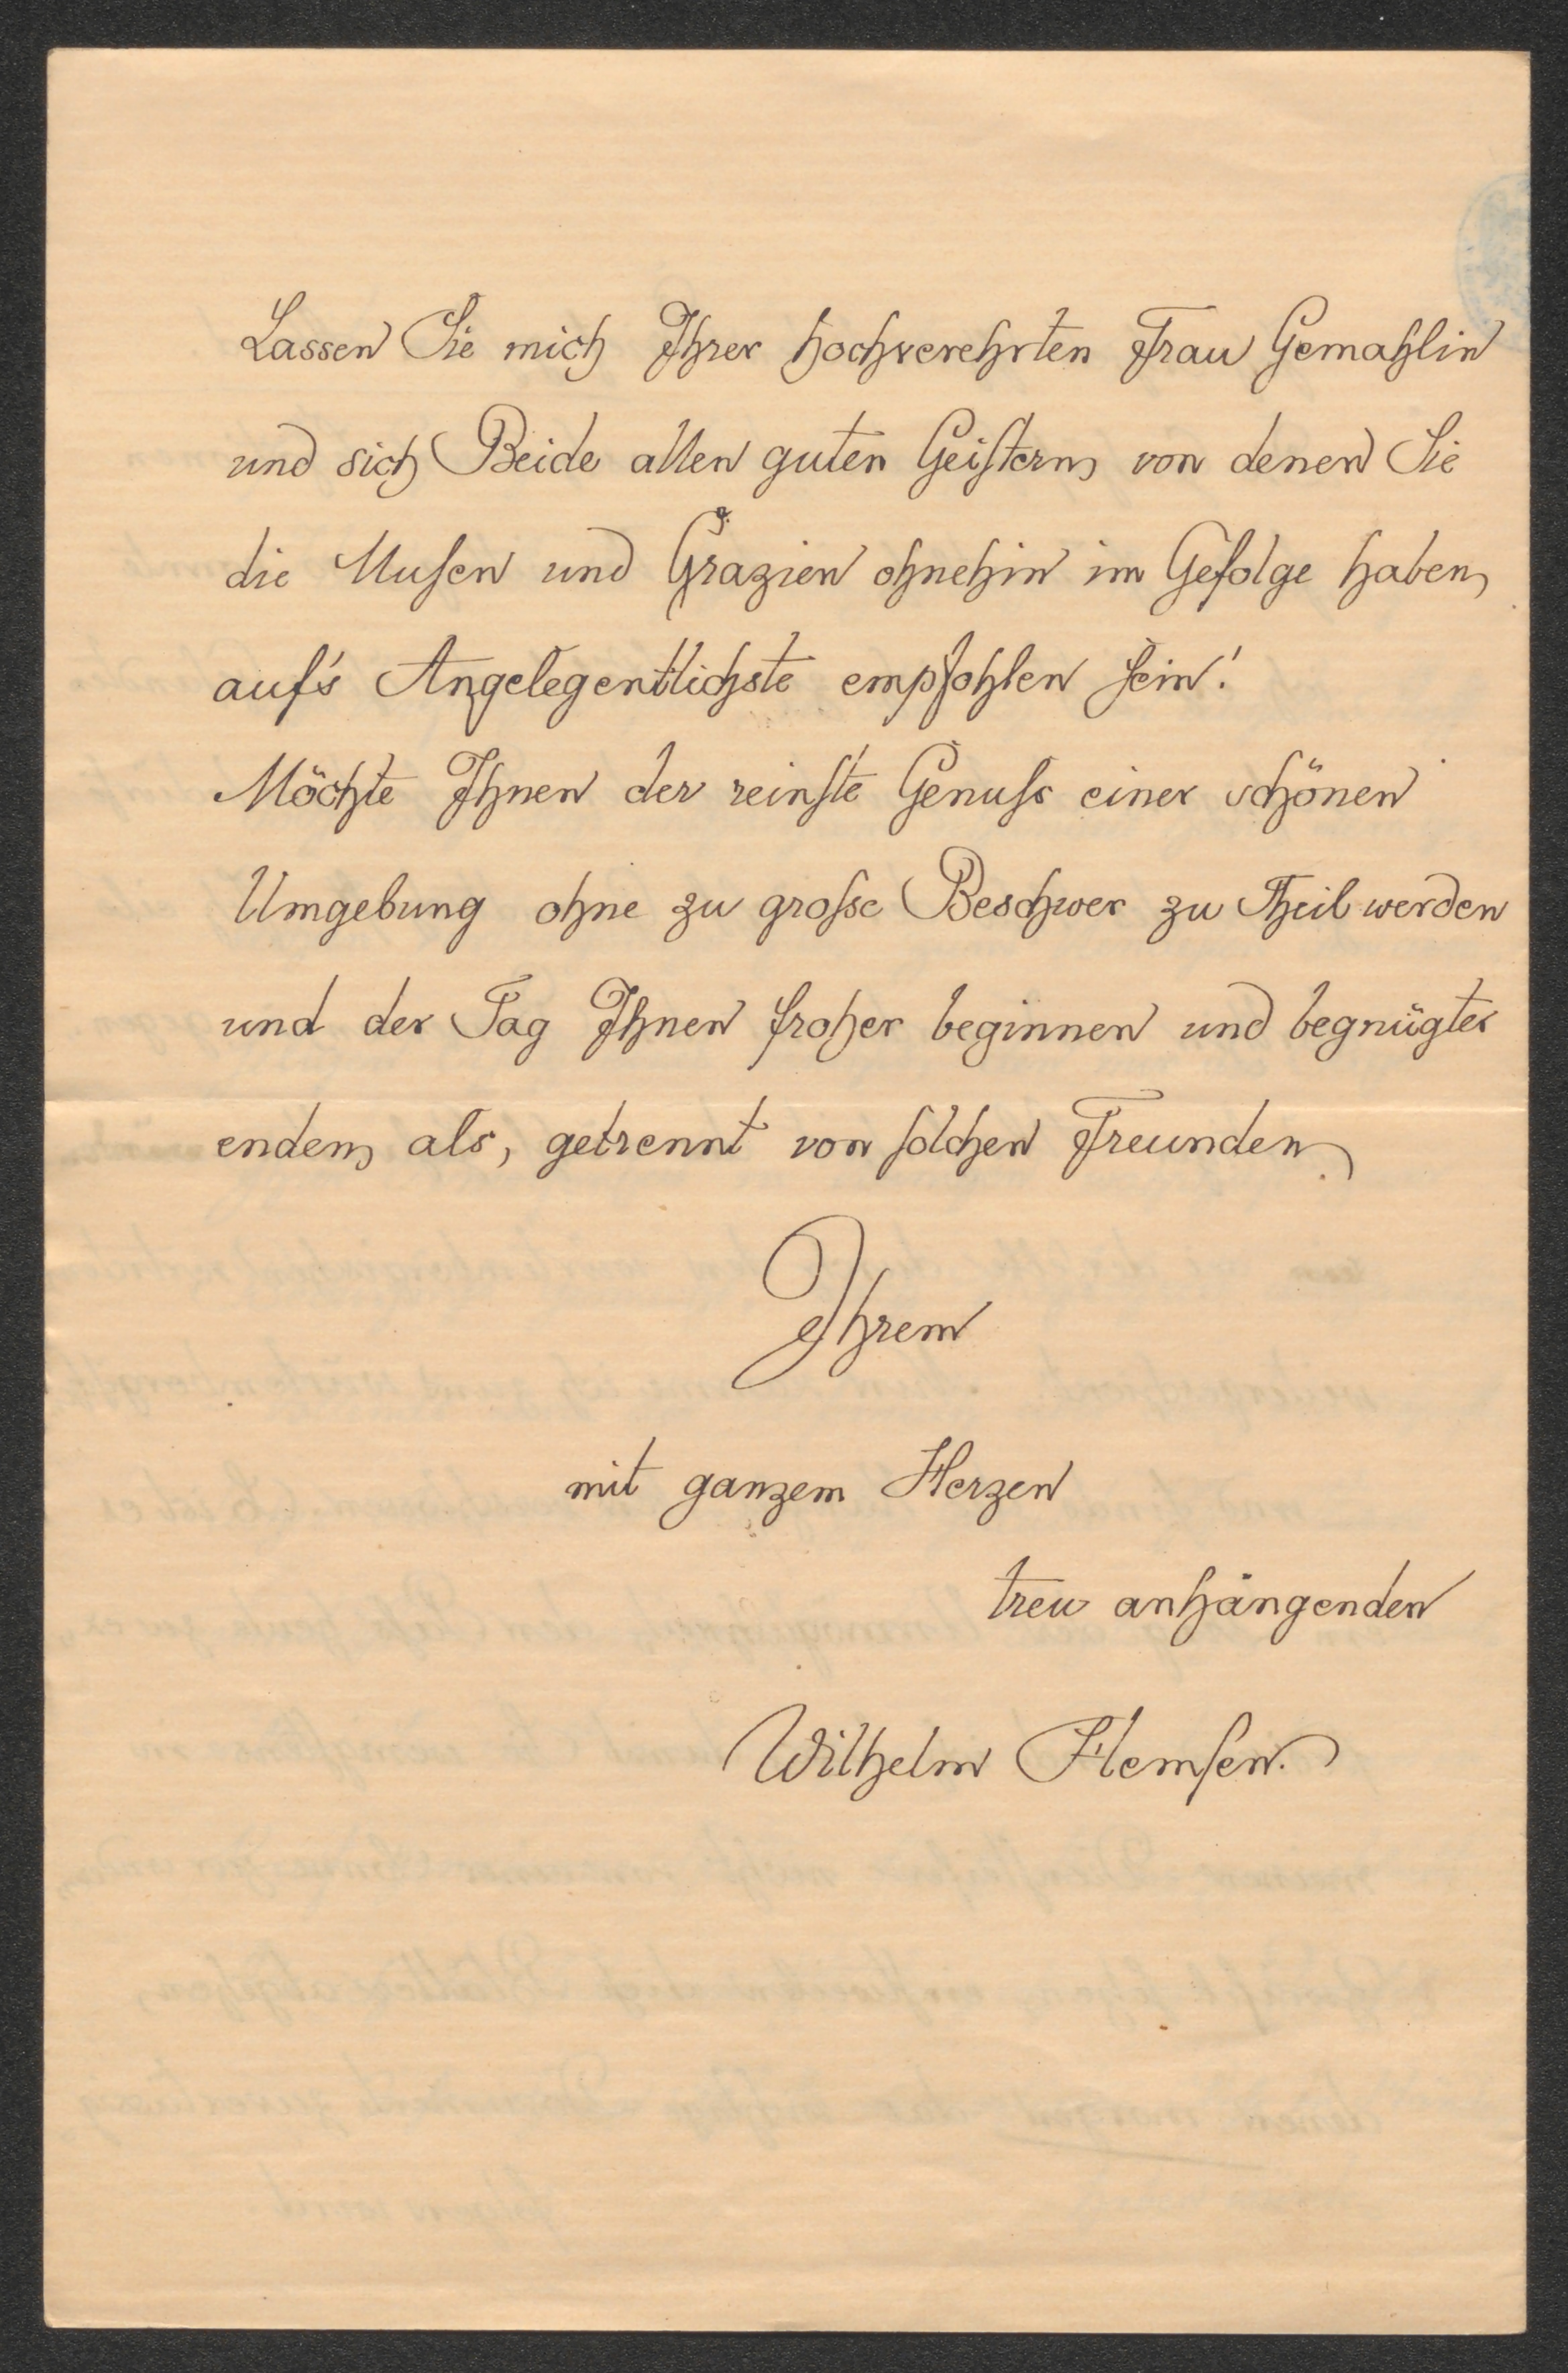 Lassen Sie mich Ihrer hochverehrten Frau Gemahlin
und sich Beide allen guten Geistern, von denen Sie
die Musen und Grazien ohnehin im Gefolge haben,
auf's Angelegentlichste empfohlen sein!
Möchte Ihnen der reinste Genuss einer schönen
Umgebung ohne zu grosse Beschwer zu Theil werden
und der Tag Ihnen froher beginnen und begnügter
enden, als, getrennt von solchen Freunden,
Ihrem
mit ganzem Herzen
treu anhängenden
Wilhelm Hemsen.